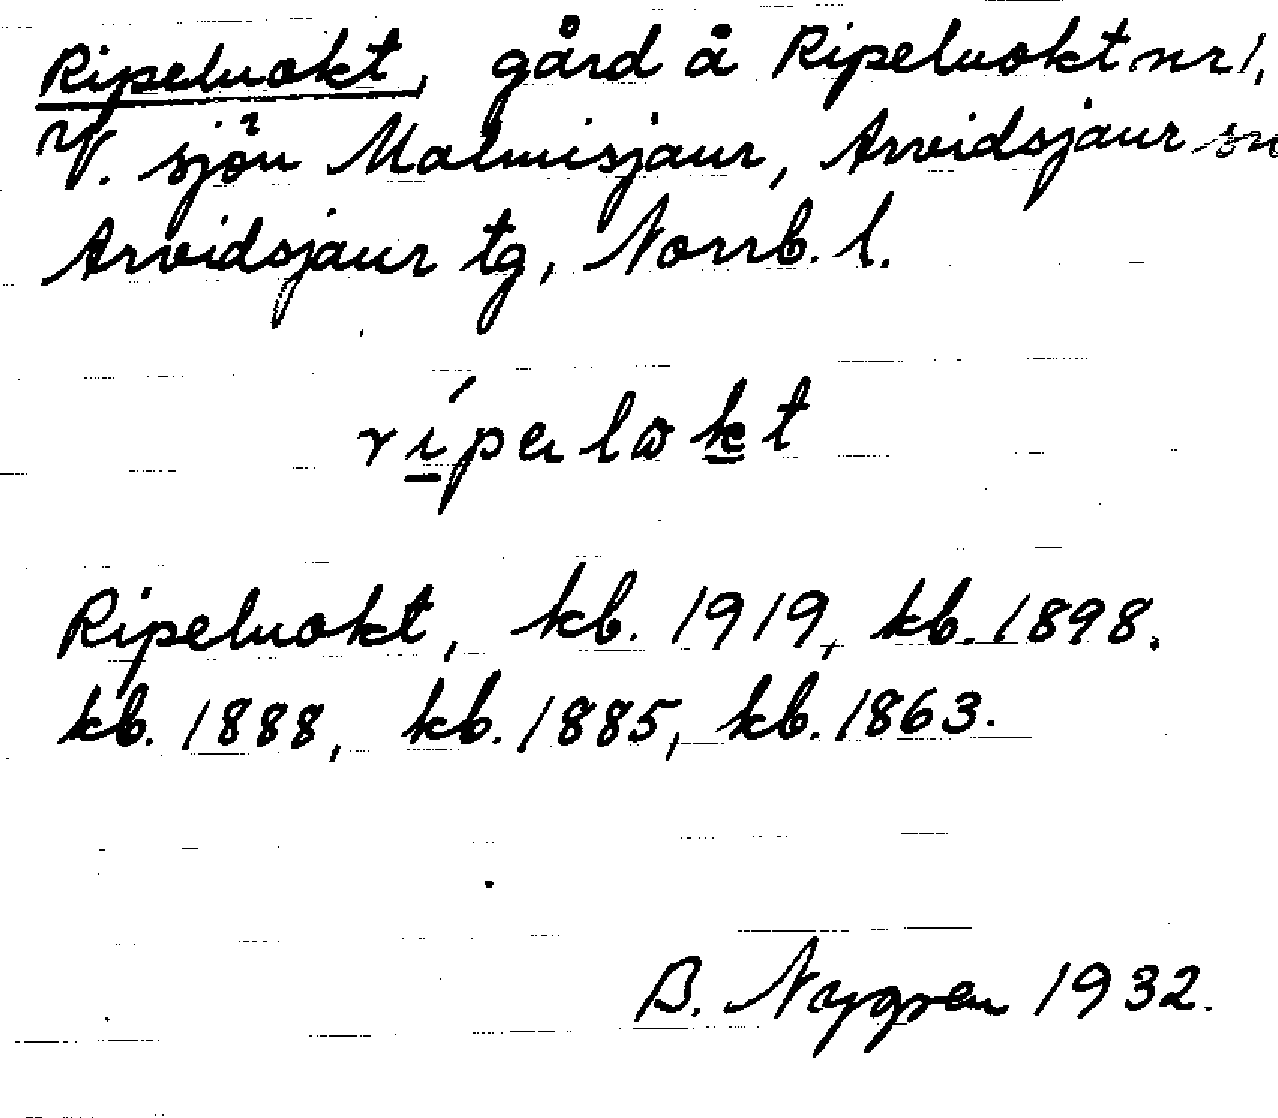 Ripeluokt, gård å Ripeluokt nr 1,
V. sjön Malmisjaur, Arvidsjaur sn
Arvidsjaur tg, Norrb. l.
Ripeluokt, kb. 1919, kb. 1898.
kb. 1888, kb. 1885, kb. 1863.
B. Nygren 1932.